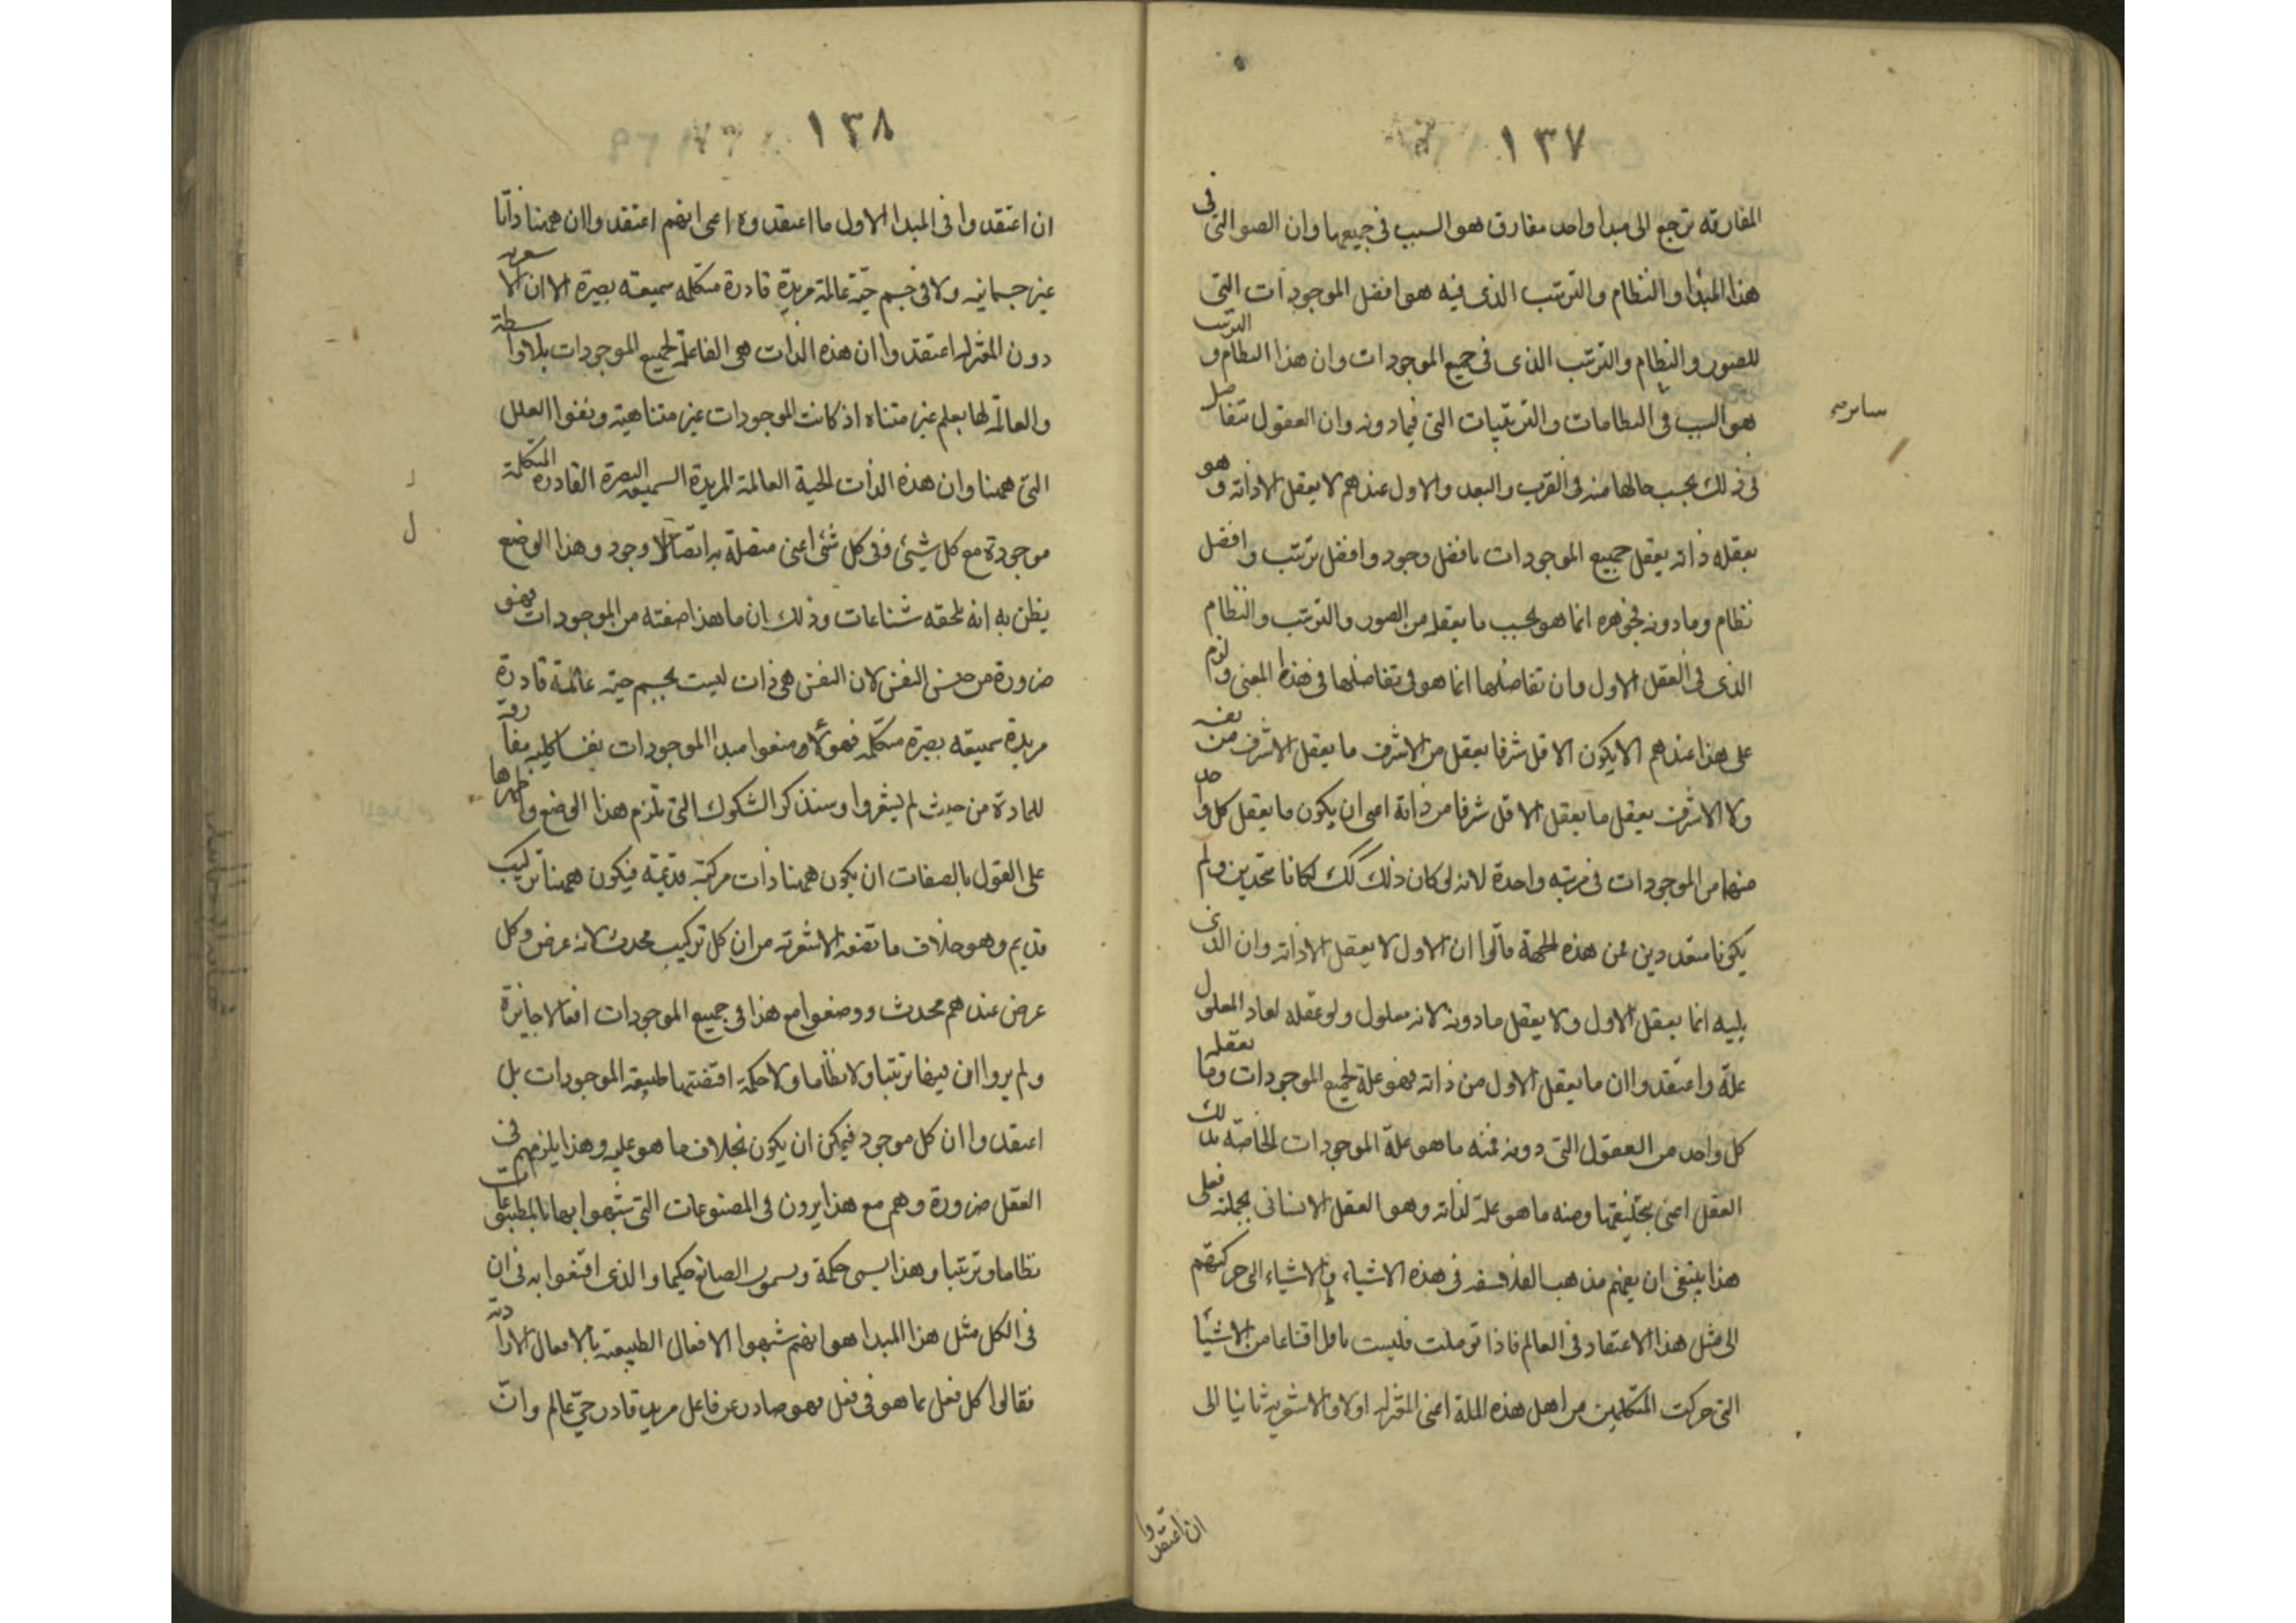 ١٣٧
المفارقه ترجع الى مبدا واحد مفارق هو السبب فى جميعها وان الصور التى فى
هذا المبدا والنظام والترتيب الذى فيه هو افضل الموجودات التى
للصور والنظام والترتيب الذى فى جميع الموجودات وان هذا النظام والترتيب
هو السبب فى النظامات والترتيبات التى فيما دونه وان العقول تتفاضل
سائر
فى ذلك بحسب حالها منه فى القرب والبعد والاول عندهم لا يعقل الا ذاته وهو
بعقله ذاته يعقل جميع الموجودات بافضل وجود وافضل ترتيب وافضل
نظام وما دونه فجوهره انما هو بحسب ما يعقله من الصور والترتيب والنظام
الذى فى العقل الاول وان تفاضلها انما هو فى تفاضلها فى هذا المعنى ولزم
على هذا عندهم الا يكون الاقل شرفا يعقل من الاشرف ما يعقل الاشرف من نفسه
ولا الاشرف يعقل ما يعقل الاقل شرفا من ذاته اعنى ان يكون ما يعقل كل واحد
منهما من الموجودات فى مرتبه واحدة لانه لو كان ذلك كك لكانا متحدين ولم
يكونا متعددين فمن هذه الجهة قالوا ان الاول لا يعقل الا ذاته وان الذى
يليه انما يعقل الاول ولا يعقل ما دونه لانه معلول ولو عقله لعاد المعلول
علة واعتقدوا ان ما يعقل الاول من ذاته فهو علة لجميع الموجودات وما يعقله
كل واحد من العقول التى دونه فمنه ما هو علة الموجودات الخاصة بذلك
العقل اعنى بتخليقها ومنه ما هو علة لذاته وهو العقل الانسانى بجملته فعلى
هذا ينبغى ان يفهم مذهب الفلاسفه فى هذه الاشياء والاشياء التى حركتهم
الى مثل هذا الاعتقاد فى العالم فاذا تؤملت فليست باقل اقناعا من الاشيا
التى حركت المتكلمين من اهل هذه الملة اعنى المعتزله اولا والاشعريه ثانيا الى
ان اعتقدوا
١٣٨
ان اعتقدوا فى المبدا الاول ما اعتقدوه اعنى انهم اعتقدوا ان ههنا ذاتا
غير جسمانيه ولا فى جسم حيّة عالمة مريدة قادرة متكلمه سميعه بصيرة الا ان الاشعريه
دون المعتزله اعتقدوا ان هذه الذات هى الفاعلة لجميع الموجودات بلا واسطة
والعالمة لها بعلم غير متناه اذ كانت الموجودات غير متناهية ونفوا العلل
التى ههنا وان هذه الذات الحية العالمة المريدة السميعه البصيرة القادرة المتكلمة
موجودة مع كل شيئ وفى كل شئ اعنى متصلة به اتصال وجود وهذا الوضع
يظن به انه تلحقه شناعات وذلك ان ما هذا صفته من الموجودات فهو
ضرورة من جنس النفس لان النفس هى ذات ليست بجسم حيّه عالمة قادرة
مريدة سميعه بصيرة متكلمه فهؤلاء وضعوا مبدا الموجودات نفسا كليه مفارقة
للمادة من حيث لم يشعروا وسنذكر الشكوك التى تلزم هذا الوضع واظهرها
على القول بالصفات ان يكون ههنا ذات مركبة قديمة فيكون ههنا تركيب
قديم وهو خلاف ما تضعه الاشعريه من ان كل تركيب محدث لانه عرض وكل
عرض عندهم محدث ووضعوا مع هذا فى جميع الموجودات افعالا جايزة
ولم يروا ان فيها ترتيبا ولا نظاما ولا حكمة اقتضتها طبيعه الموجودات بل
اعتقدوا ان كل موجود فيمكن ان يكون بخلاف ما هو عليه وهذا يلزمهم فى
العقل ضرورة وهم مع هذا يرون فى المصنوعات التى شبهوا بها المطبوعات
نظاما وترتيبا وهذا يسمى حكمة ويسمون الصانع حكيما والذى اقنعوا به فى ان
فى الكل مثل هذا المبدا هو انهم شبهوا الافعال الطبيعيه بالافعال الارادية
فقالوا كل فعل بما هو فى فعل فهو صادر عن فاعل مريد قادر حىّ عالم وان